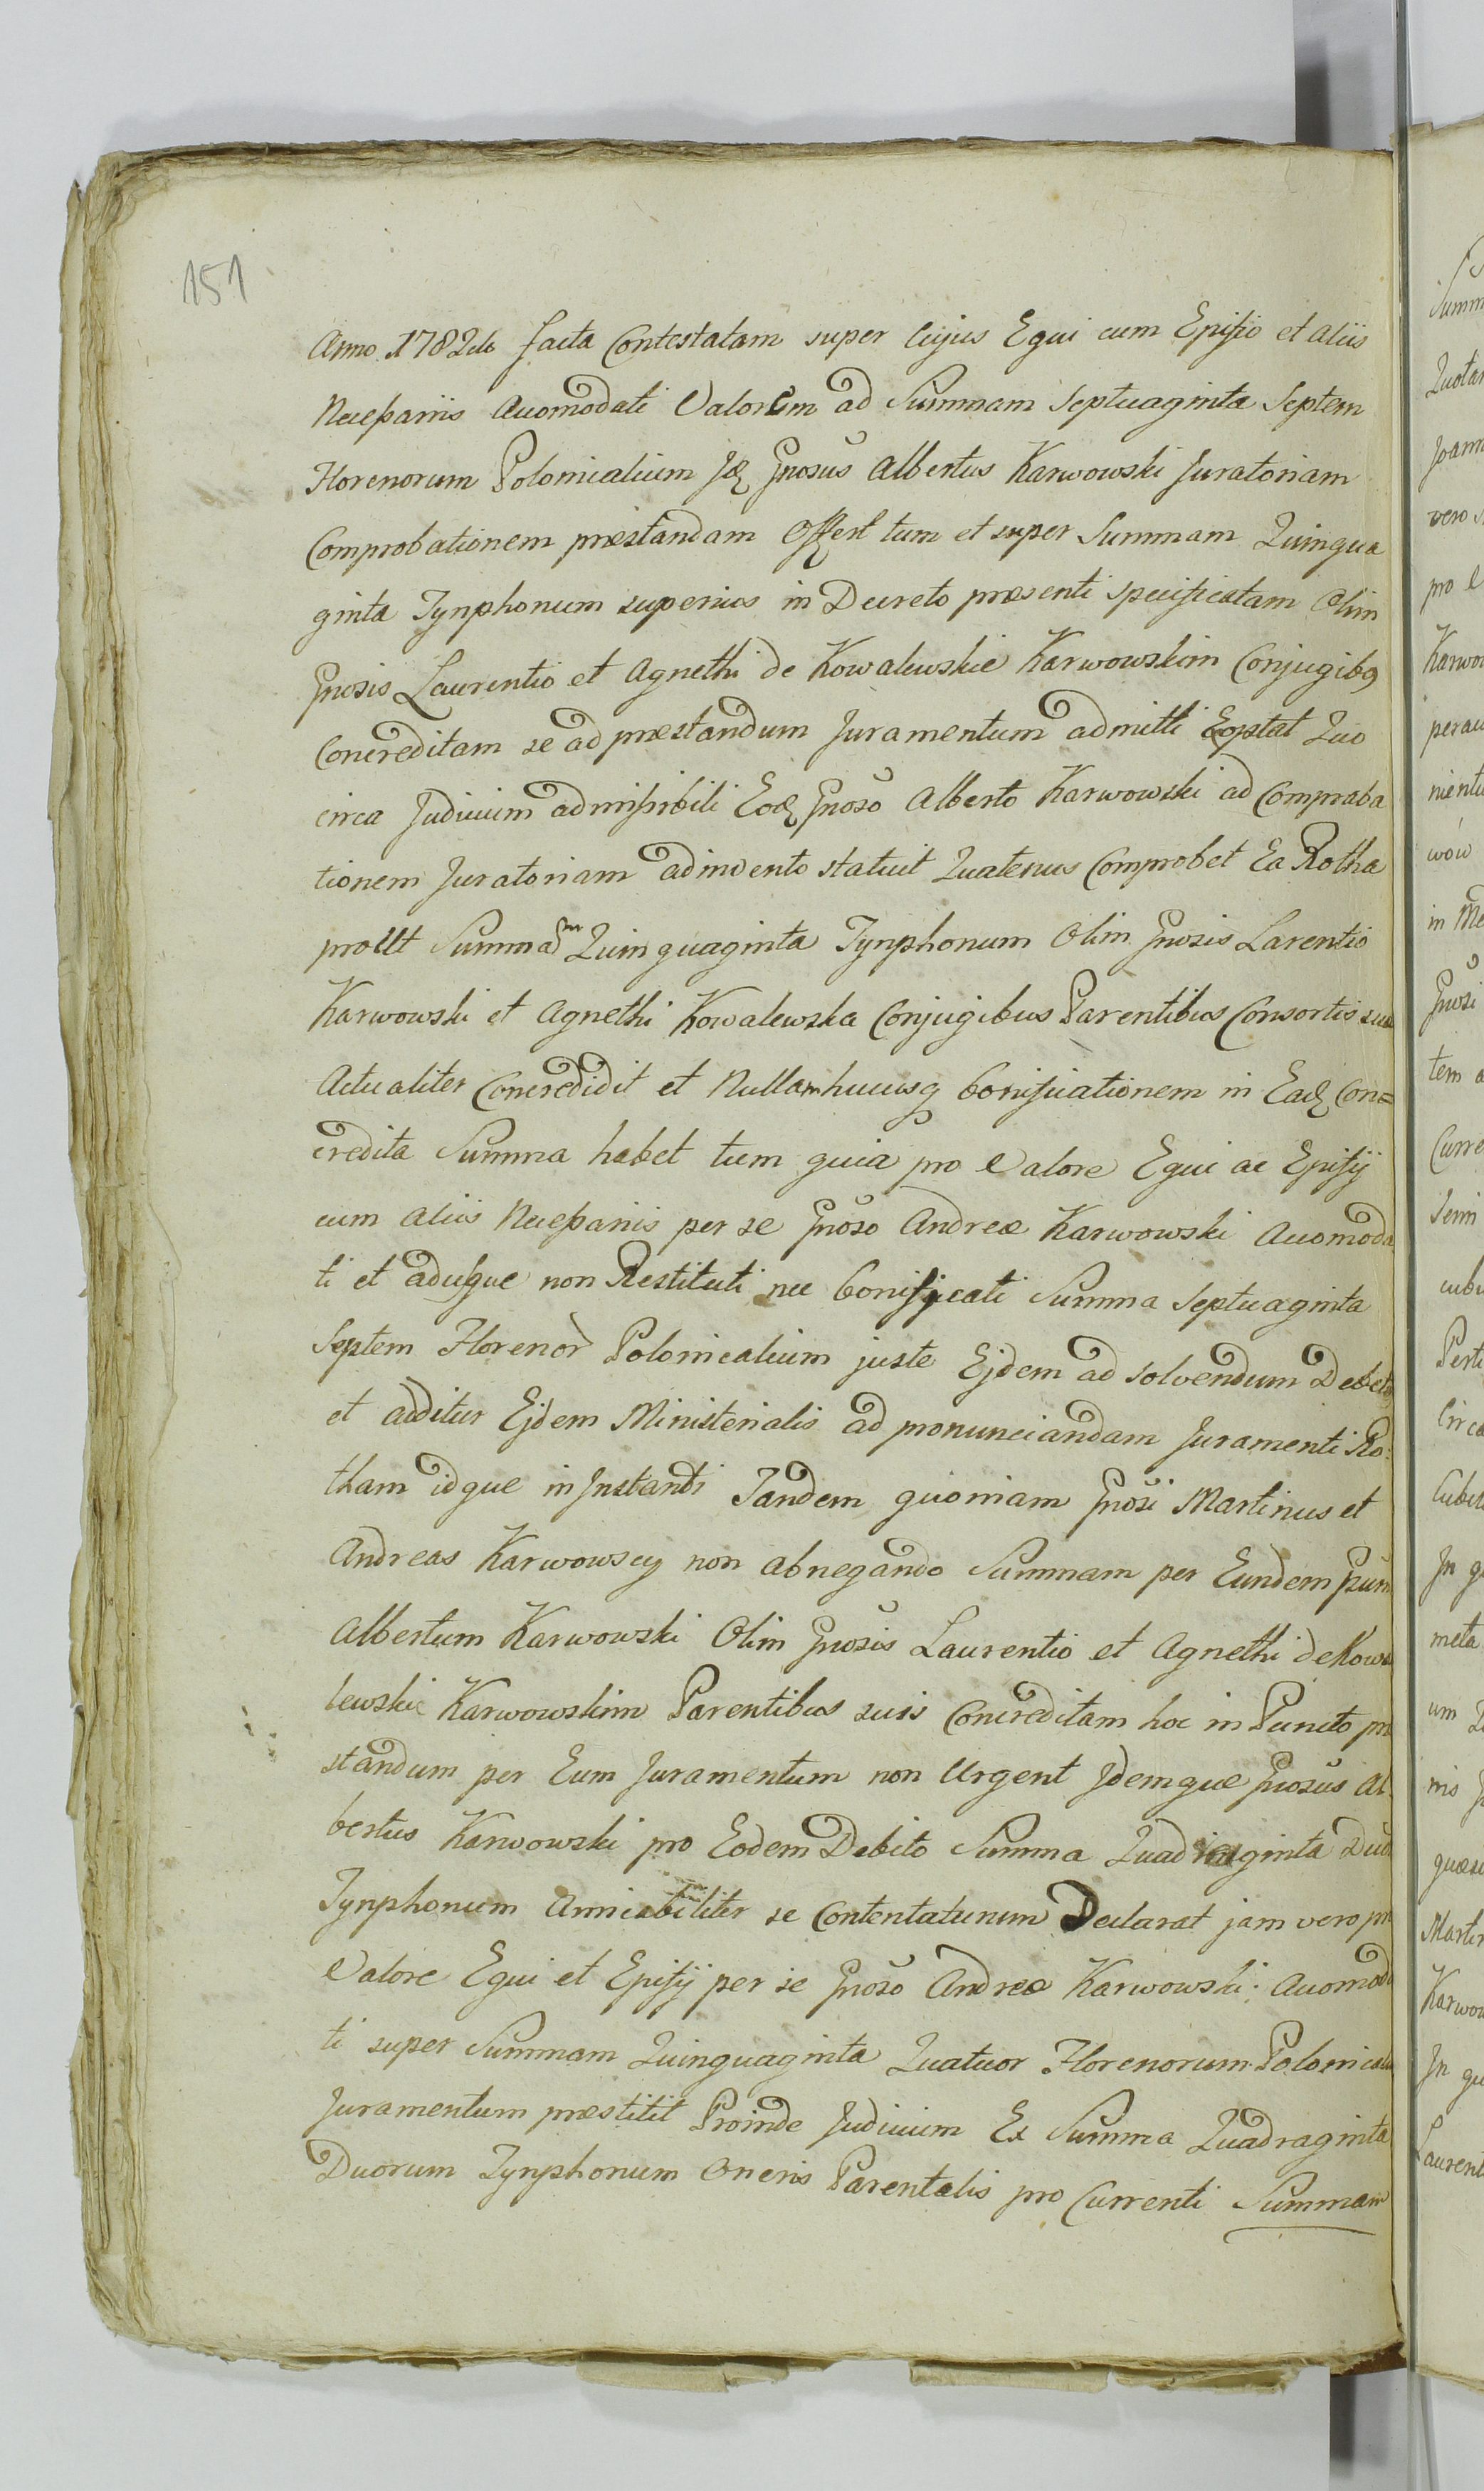 151
Anno 1782do facta Contestatam super Cujus Equi cum Episio et aliis
Necessariis Accomodati Valorem ad Summam Septuaginta Septem
Florenorum Polonicalium Jdem Gnosus Albertus Karwowski Juratoriam
Comprobationem præstandam Offert tum et super Summam Quinqua
ginta Tynphonum superius in Decreto præsenti specificatam Olim
Gnosis Laurentio et Agnethi de Kowalewskie Karwowskim Conjugibq
Concreditam se ad præstandum Juramentum admitti Exoptat Quo
circa Judicium admissibili Eodem Gnoso Alberto Karwowski ad Compraba
tionem Juratoriam adinvento statuit Quatenus Comprobet Ea Rotha
proUt Summam Quinquaginta Tynphonum Olim Gnosis Larentio
Karwowski et Agnethi Kowalewska Conjugibus Parentibus Consortis suæ
Actualiter Concredidit et Nullam hucusq bonificationem in Eadem Con=
credita Summa habet tum quia pro Valore Equi ac Episij
cum aliis Necessariis per se Gnoso Andreæ Karwowski Accomoda
ti et adusque non Restituti nec bonificati Summa Septuaginta
Septem Florenor Polonicalium juste Ejdem ad solvendum Debet
et additur Ejdem Ministerialis ad pronunciandam Juramenti Ro:
tham idque in Jnstanti Tandem quoniam Gnosi Martinus et
Andreas Karwowscy non abnegando Summam per Eundem Gsum
Albertum Karwowski Olim Gnosis Laurentio et Agnethi de Kowa
lewskie Karwowskim Parentibus suis Concreditam hoc in Puncto præ
standum per Eum Juramentum non Urgent Jdemque Gnosus Al
bertus Karwowski pro Eodem Debito Summa Quadraginta Duo
Tynphonum Amicabiliter se Contentaturum Declarat jam vero pro
Valore Equi et Episij per se Gnoso Andreæ Karwowski Accomoda
ti super Summam Quinquaginta Quatuor Florenorum Polonicaliu
Juramentum præstitit Proinde Judicium Ex Summa Quadraginta
Duorum Tynphonum Oneris Parentalis pro Currenti Summam